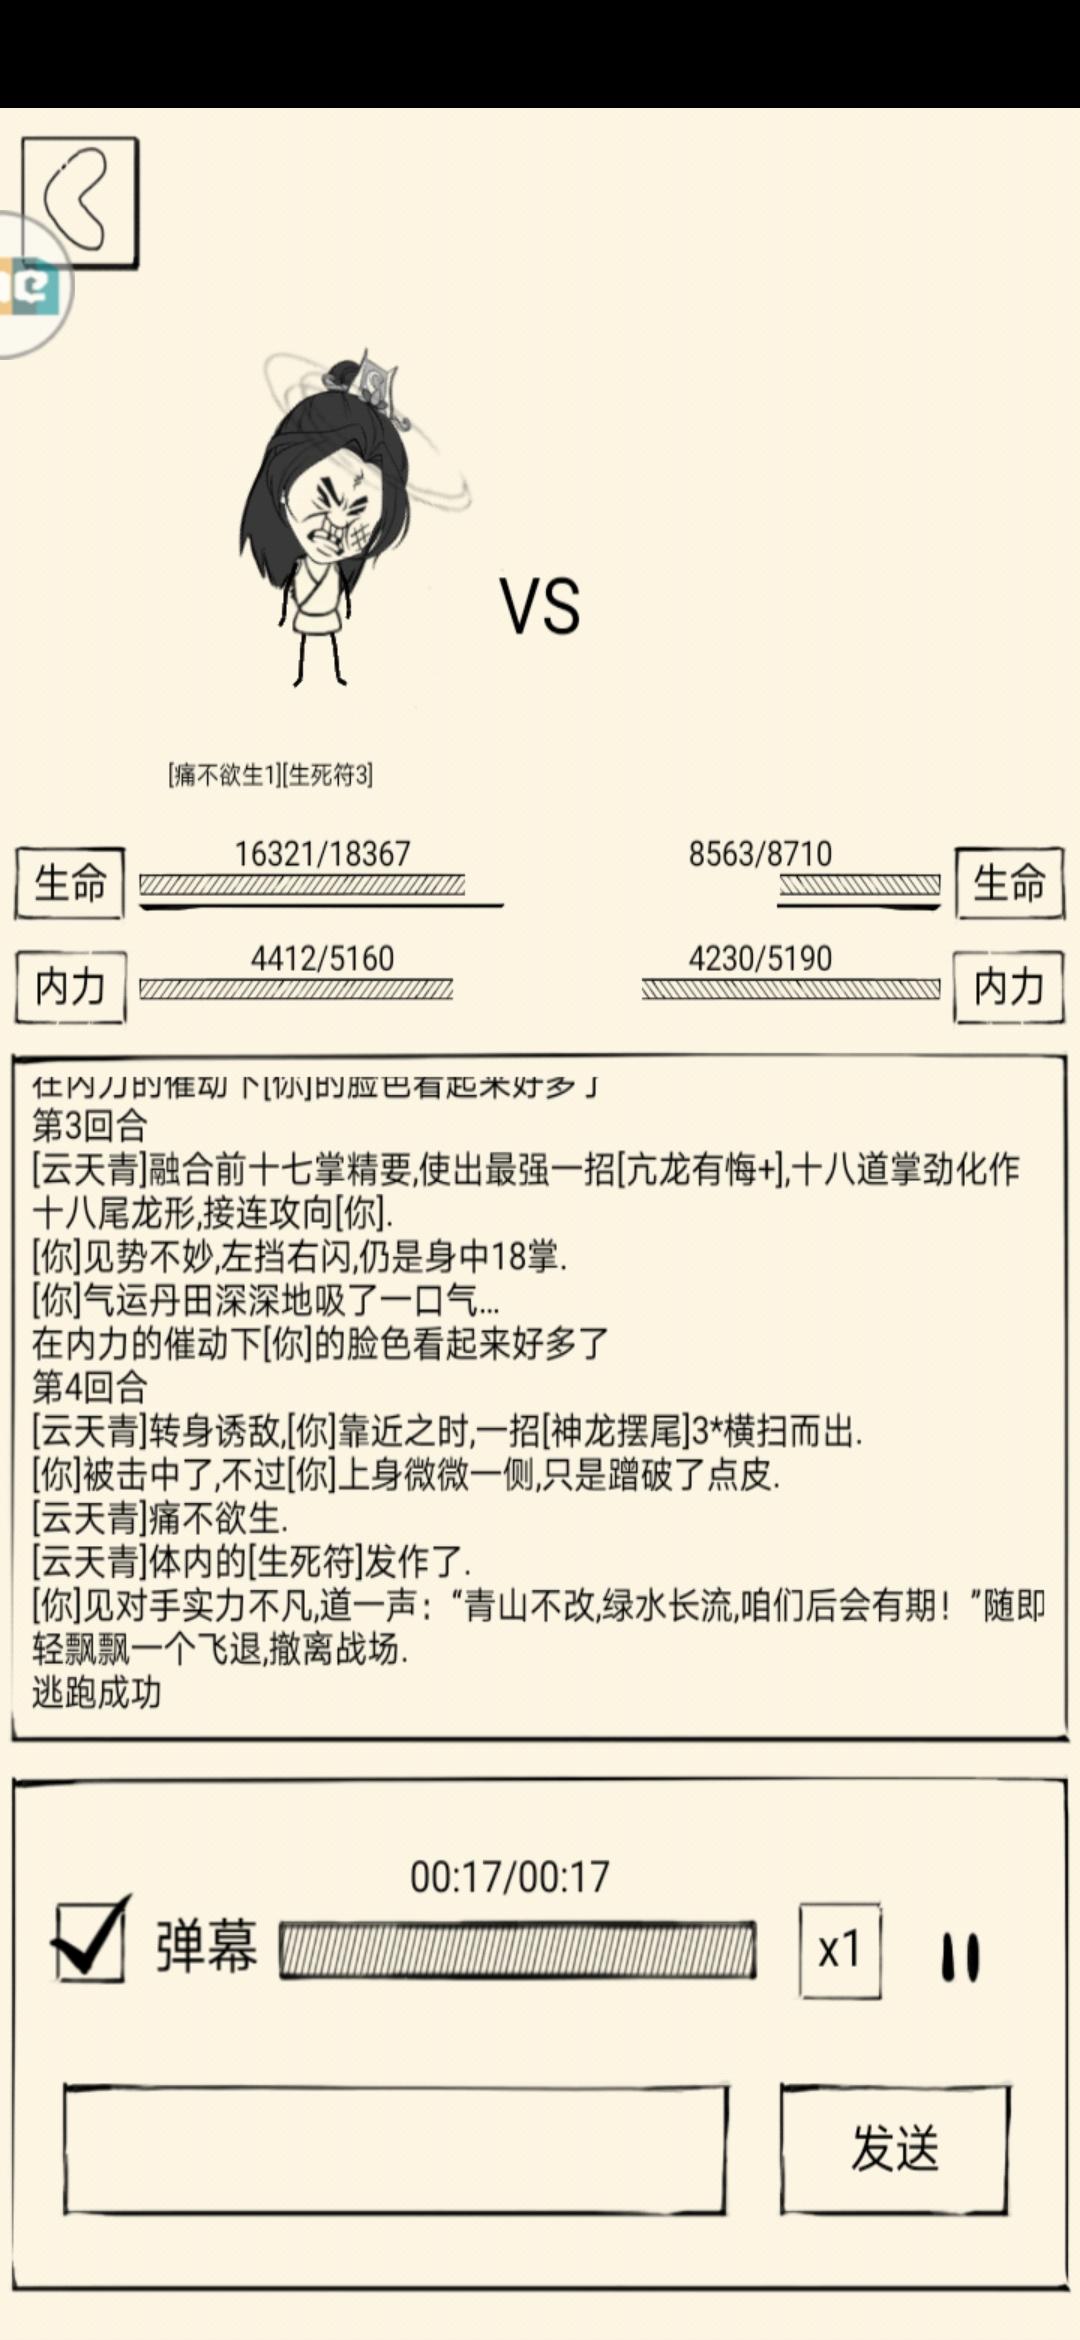 VS
[痛不欲生1][生死符3]
生命 16321/18367 8563/8710 生命
内力 4412/5160 4230/5190 内力
在内力的催动下[你]的脸色看起来好多了
第3回合
[云天青]融合前十七掌精要,使出最强一招[亢龙有悔+],十八道掌劲化作
十八尾龙形,接连攻向[你].
[你]见势不妙,左挡右闪,仍是身中18掌.
[你]气运丹田深深地吸了一口气...
在内力的催动下[你]的脸色看起来好多了
第4回合
[云天青]转身诱敌,[你]靠近之时,一招[神龙摆尾]3*横扫而出.
[你]被击中了,不过[你]上身微微一侧,只是蹭破了点皮.
[云天青]痛不欲生.
[云天青]体内的[生死符]发作了.
[你]见对手实力不凡,道一声：“青山不改,绿水长流,咱们后会有期！”随即
轻飘飘一个飞退,撤离战场.
逃跑成功
00:17/00:17
弹幕 x1
发送